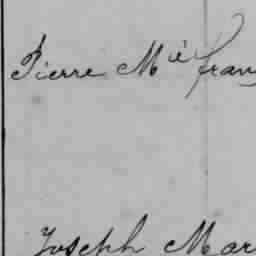 Pierre Mie fran
Joseph Mar